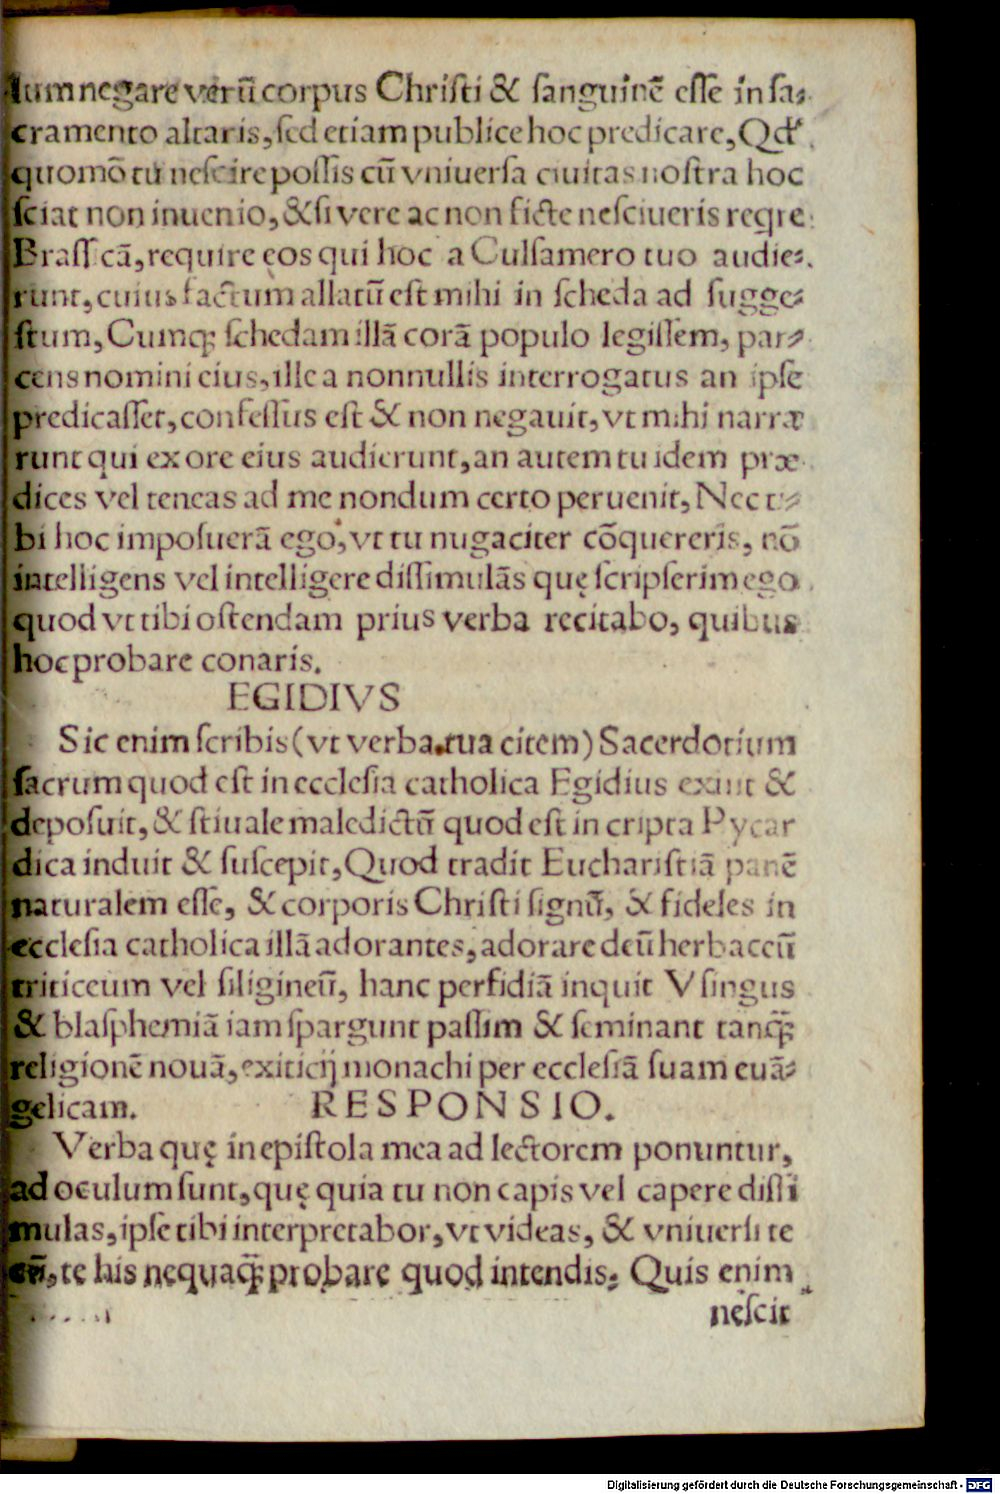 lum negare verū corpus Chriſti & ſanguinē eſſe in ſa⸗
cramento altaris, ſed etiam publice hoc predicare, Qd'
quomō tu neſcire poſſis cū vniuerſa ciuitas noſtra hoc
ſciat non inuenio, & ſi vere ac non ficte neſciueris reqre
Braſſicā, require eos qui hoc a Culſamero tuo audie⸗
runt, cuius factum allatū eſt mihi in ſcheda ad ſugge⸗
ſtum, Cumq; ſchedam illā corā populo legiſſem, par⸗
cens nomini eius, ille a nonnullis interrogatus an ipſe
predicaſſet, confeſſus eſt & non negauit, vt mihi narra
runt qui ex ore eius audierunt, an autem tu idem præ
dices vel teneas ad me nondum certo peruenit, Nec ti⸗
bi hoc impoſuerā ego, vt tu nugaciter cōquereris, nō
intelligens vel intelligere diſſimulās quę ſcripſerim ego
quod vt tibi oſtendam prius verba recitabo, quibus
hoc probare conaris.
EGIDIVS
Sic enim ſcribis (vt verba tua citem) Sacerdotium
ſacrum quod eſt in eccleſia catholica Egidius exuit &
depoſuit, & ſtiuale maledictū quod eſt in cripta Pycar
dica induit & ſuſcepit, Quod tradit Euchariſtiā panē
naturalem eſſe, & corporis Chriſti ſignū, & fideles in
eccleſia catholica illā adorantes, adorare deū herbaceū
triticeum vel ſiligineū, hanc perfidiā inquit Vſingus
& blaſphemiā iam ſpargunt paſſim & ſeminant tanq̄;
religionē nouā, exiticij monachi per eccleſiā ſuam euā⸗
gelicam. RESPONSIO.
Verba quę in epiſtola mea ad lectorem ponuntur,
ad oculum ſunt, quę quia tu non capis vel capere diſſi
mulas, ipſe tibi interpretabor, vt videas, & vniuerſi te
cū, te his nequaq̄; probare quod intendis. Quis enim
neſcit
Digitalisierung gefördert durch die Deutsche Forschungsgemeinschaft - DFG